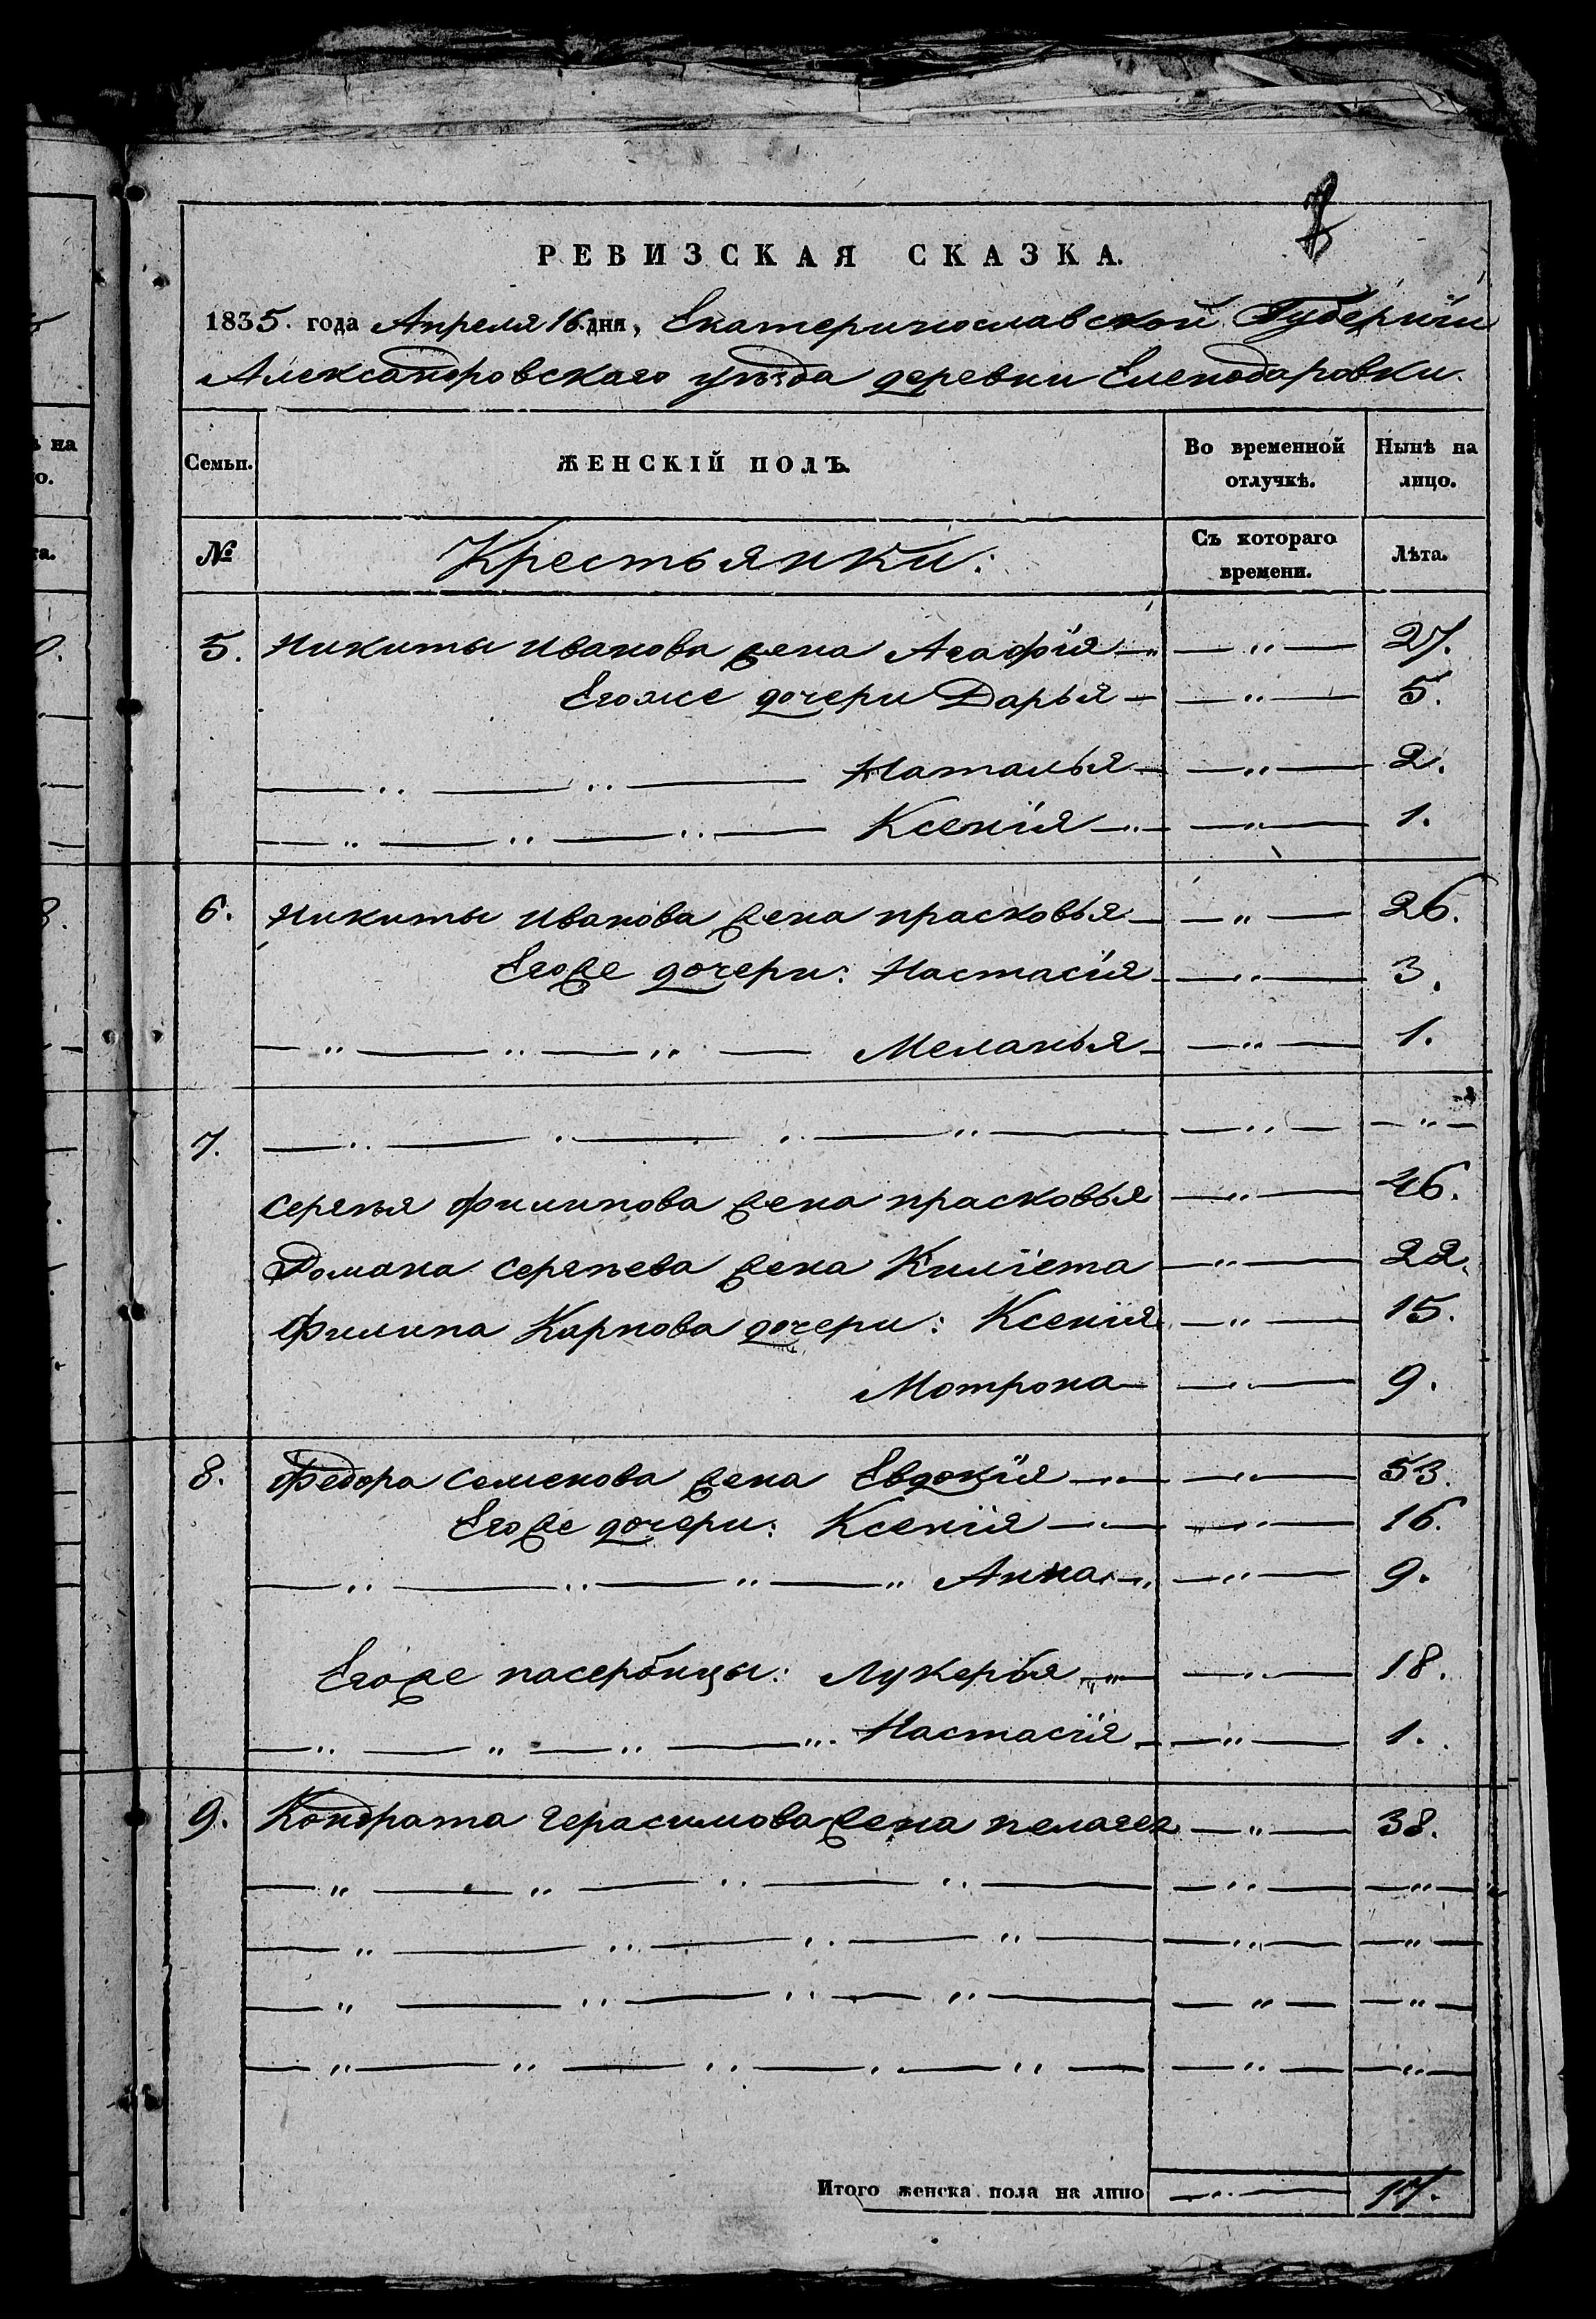 РЕВИЗСКАЯ СКАЗКА.
1835. года Апреля 16. дня, Екатеринославской Губернiи
Александровского уѣзда деревни Еленодаровки.
Семьи. ЖЕНСКIЙ ПОЛЪ. Во временной отлучкѣ. Нынѣ на лицо.
№ Крестьянки: Съ котораго времени. Лѣта.
5. Никиты Иванова жена Агафiя — " — 27.
Егоже дочери Дарья — " — 5.
— " — " — Наталья — " — 2.
— " — " — " — Ксенiя — " — 1.
6. Никиты Иванова жена прасковья — " — 26.
Егоже дочери: Настасiя — " — 3.
— " — " — " — Меланья — " — 1.
7. — " — " — " — " — — " — — " —
Сергея Филипова жена прасковья — " — 46.
Романа Сергѣева жена Килiета — " — 22.
Филипа Карпова дочери: Ксенiя — " — 15.
Мотрона — " — 9.
8. Федора Семенова жена Евдокiя — " — 53.
Егоже дочери: Ксенiя — " — 16.
— " — " — " — " Анна — " — 9.
Егоже пасербицы: Лукерья — " — 18.
— " — " — " — " Настасiя — " — 1.
9. Кондрата Герасимова жена пелагея — " — 38.
— " — " — " — " — — " — — " —
— " — " — " — " — — " — — " —
— " — " — " — " — — " — — " —
— " — " — " — " — " — — " — — " —
Итого женска пола на лицо — " — 17.
ѣ на
о.
та.